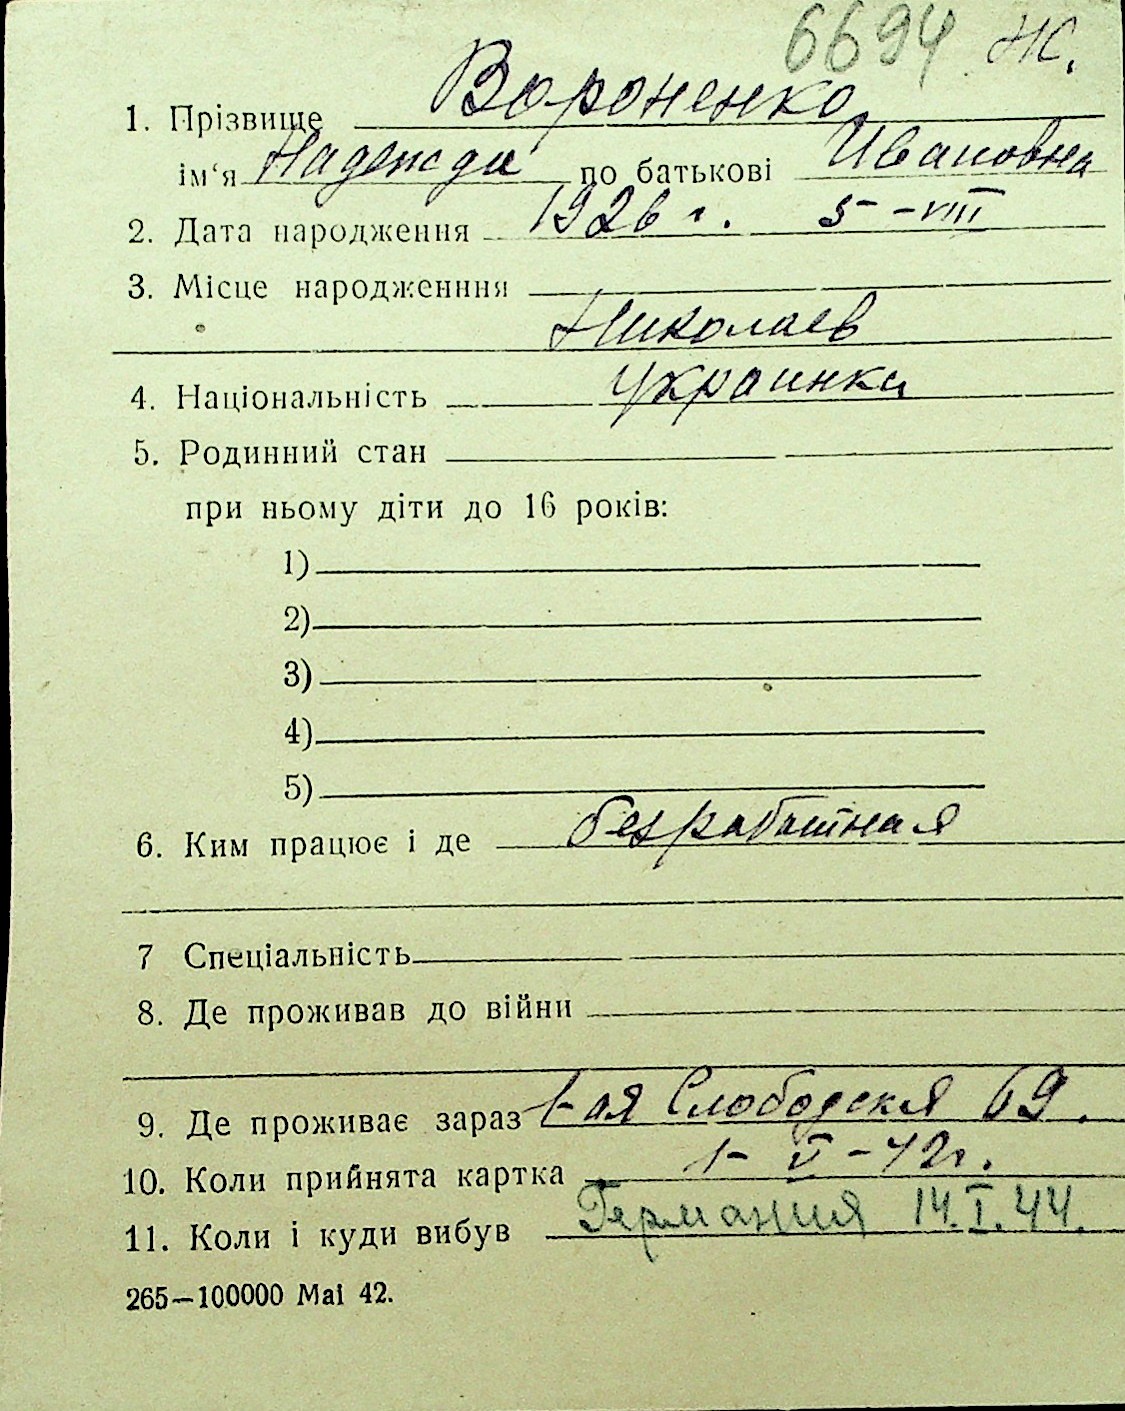 6694 Ж.
1. Прізвище Вороненко
ім‘я Надежда по батькові Ивановна
2. Дата народження 1926 г. 5-VIII
3. Місце народженння
Николаев
4. Національність украинка
5. Родинний стан
при ньому діти до 16 років:
1)
2)
3)
4)
5)
6. Ким працює і де безработная
7 Спеціальність
8. Де проживав до війни
9. Де проживає зараз 1-ая Слободская 69.
10. Коли прийнята картка 1-V-42г.
11. Коли і куди вибув Германия 14.I.44.
265—100000 Mai 42.